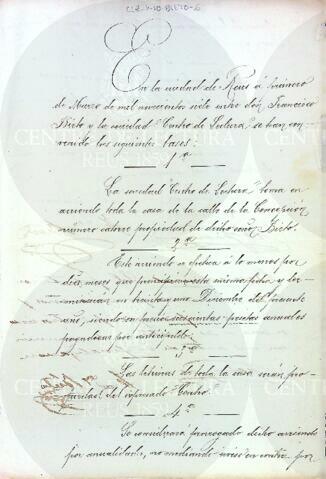 En la ciudad de Reus á primero
de Marzo de mil novecientos siete entre don Francisco
Bieto y la sociedad "Centro de Lectura" se han con-
venido las siguientes bases.
1ª
La sociedad "Centro de Lectura" toma en
arriendo toda la casa de la calle de la Concepción
número catorce propiedad de dicho señor Bieto.
2ª
Este arriendo se efectua á lo menos por
diez meses que principian esta misma fecha y ter-
minarán en treinta uno Diciembre del presente
año, siendo su precio pesetas anuales
pagaderas por anticipado.
3ª
Las letrinas de toda la casa serán pro-
piedad del expresado "Centro"
4ª
Se considerará prorrogado dicho arriendo
por anualidades, no mediando aviso en contra por
CENTRE DE LECTURA
REUS 1859